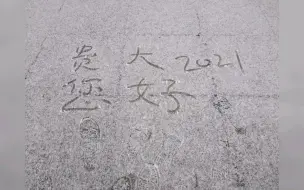 贵大 2021
您好